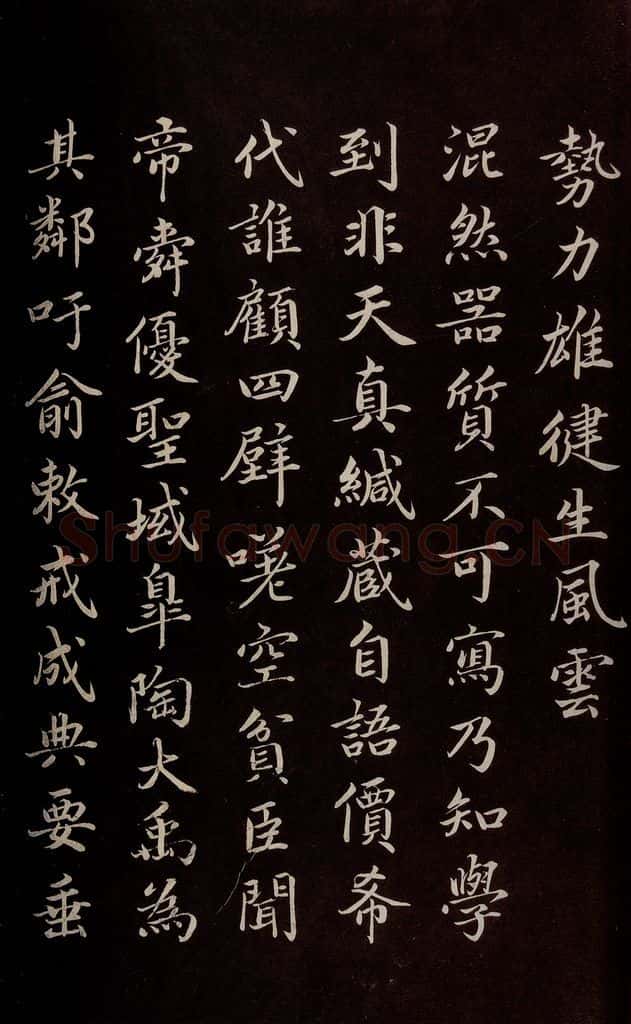 勢力雄健生風雲
混然器質不可寫乃知學
到非天真緘藏自語價希
代誰顧四壁嘆空貧臣聞
帝舜優聖域皐陶大禹為
其鄰吁俞敕戒成典要垂
Shufawang.CN